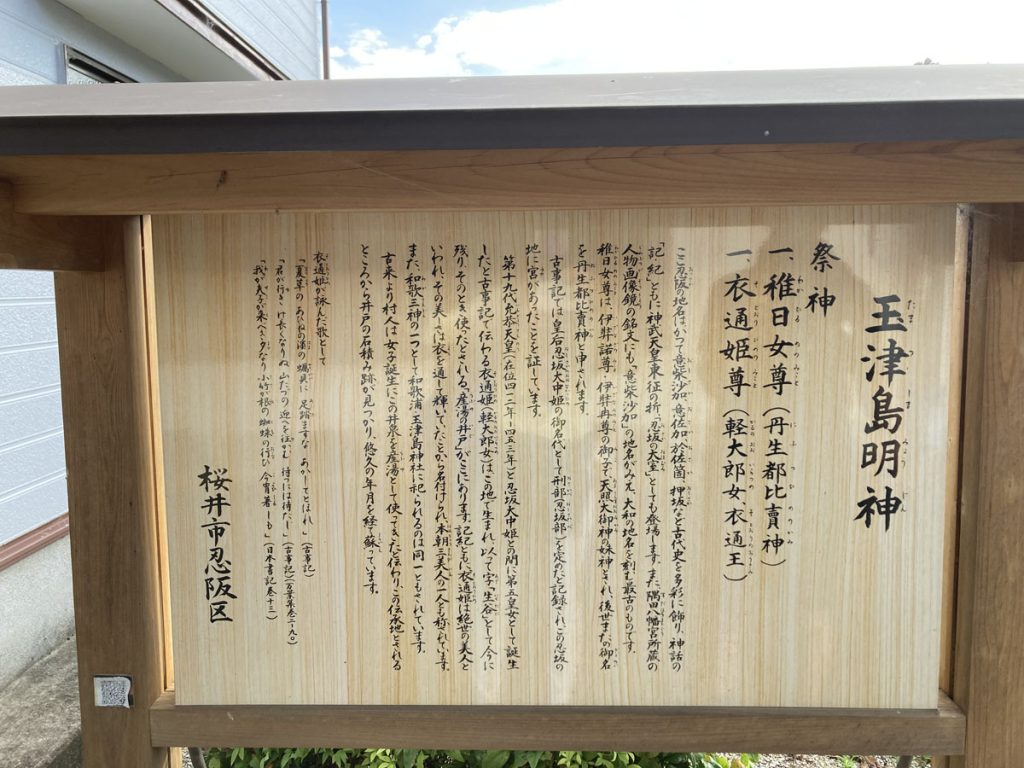 玉津島明神
祭神
一、稚日女尊（丹生都比賣神）
一、衣通姫尊（軽大郎女、衣通王）
ここ忍阪の地名はかつて意柴沙加、意佐加、於佐箇、押坂など古代史を多彩に飾り、神話の
「記・紀」ともに神武天皇東征の折、「忍坂の大室」としても登場します。また、隅田八幡宮所蔵の
人物画像鏡の銘文にも、「意柴沙加」の地名がみえ、大和の地名を刻む最古のものです。
稚日女尊は、伊弉諾尊、伊弉冉尊の御子で、天照大御神の妹神とされ、後世またの御名
を丹生都比賣神と申されます。
古事記では皇后忍坂大中姫の御名代として刑部（忍坂部）を定めたと記録され、この忍坂の
地に宮があったことを証しています。
第十九代允恭天皇（在位四一二年～四五三年）と忍坂大中姫との間に第五皇女として誕生
したと古事記で伝わる衣通姫（軽大郎女）はこの地で生まれ、以って字「生谷」として今に
残り、そのとき使ったとされる、「産湯の井戸」がここにあります。記紀ともに、衣通姫は絶世の美人と
いわれ、その美しさは衣を通して輝いていたことから名付けられ、本朝三美人の一人とも称されています。
また、和歌三神の一つとして和歌浦、玉津島神社に祀られるのは同一ともされています。
古来より村人は女子誕生にこの井泉を産湯として使ってきたと伝わり、この伝承地とされる
ところから井戸の石積み跡が見つかり、悠久の年月を経て蘇っています。
衣通姫が詠んだ歌として
「夏草の あひねの浜の 蠣貝に 足踏ますな あかしてとほれ」（古事記）
「君が行き け長くなりぬ 山たづの 迎へを往かむ 待つには待たじ」（古事記）（万葉集巻二ー九〇）
「我が夫子が 来べき夕なり 小竹が根の 蜘蛛の行ひ 今宵著しも」（日本書記巻十三）
桜井市忍阪区